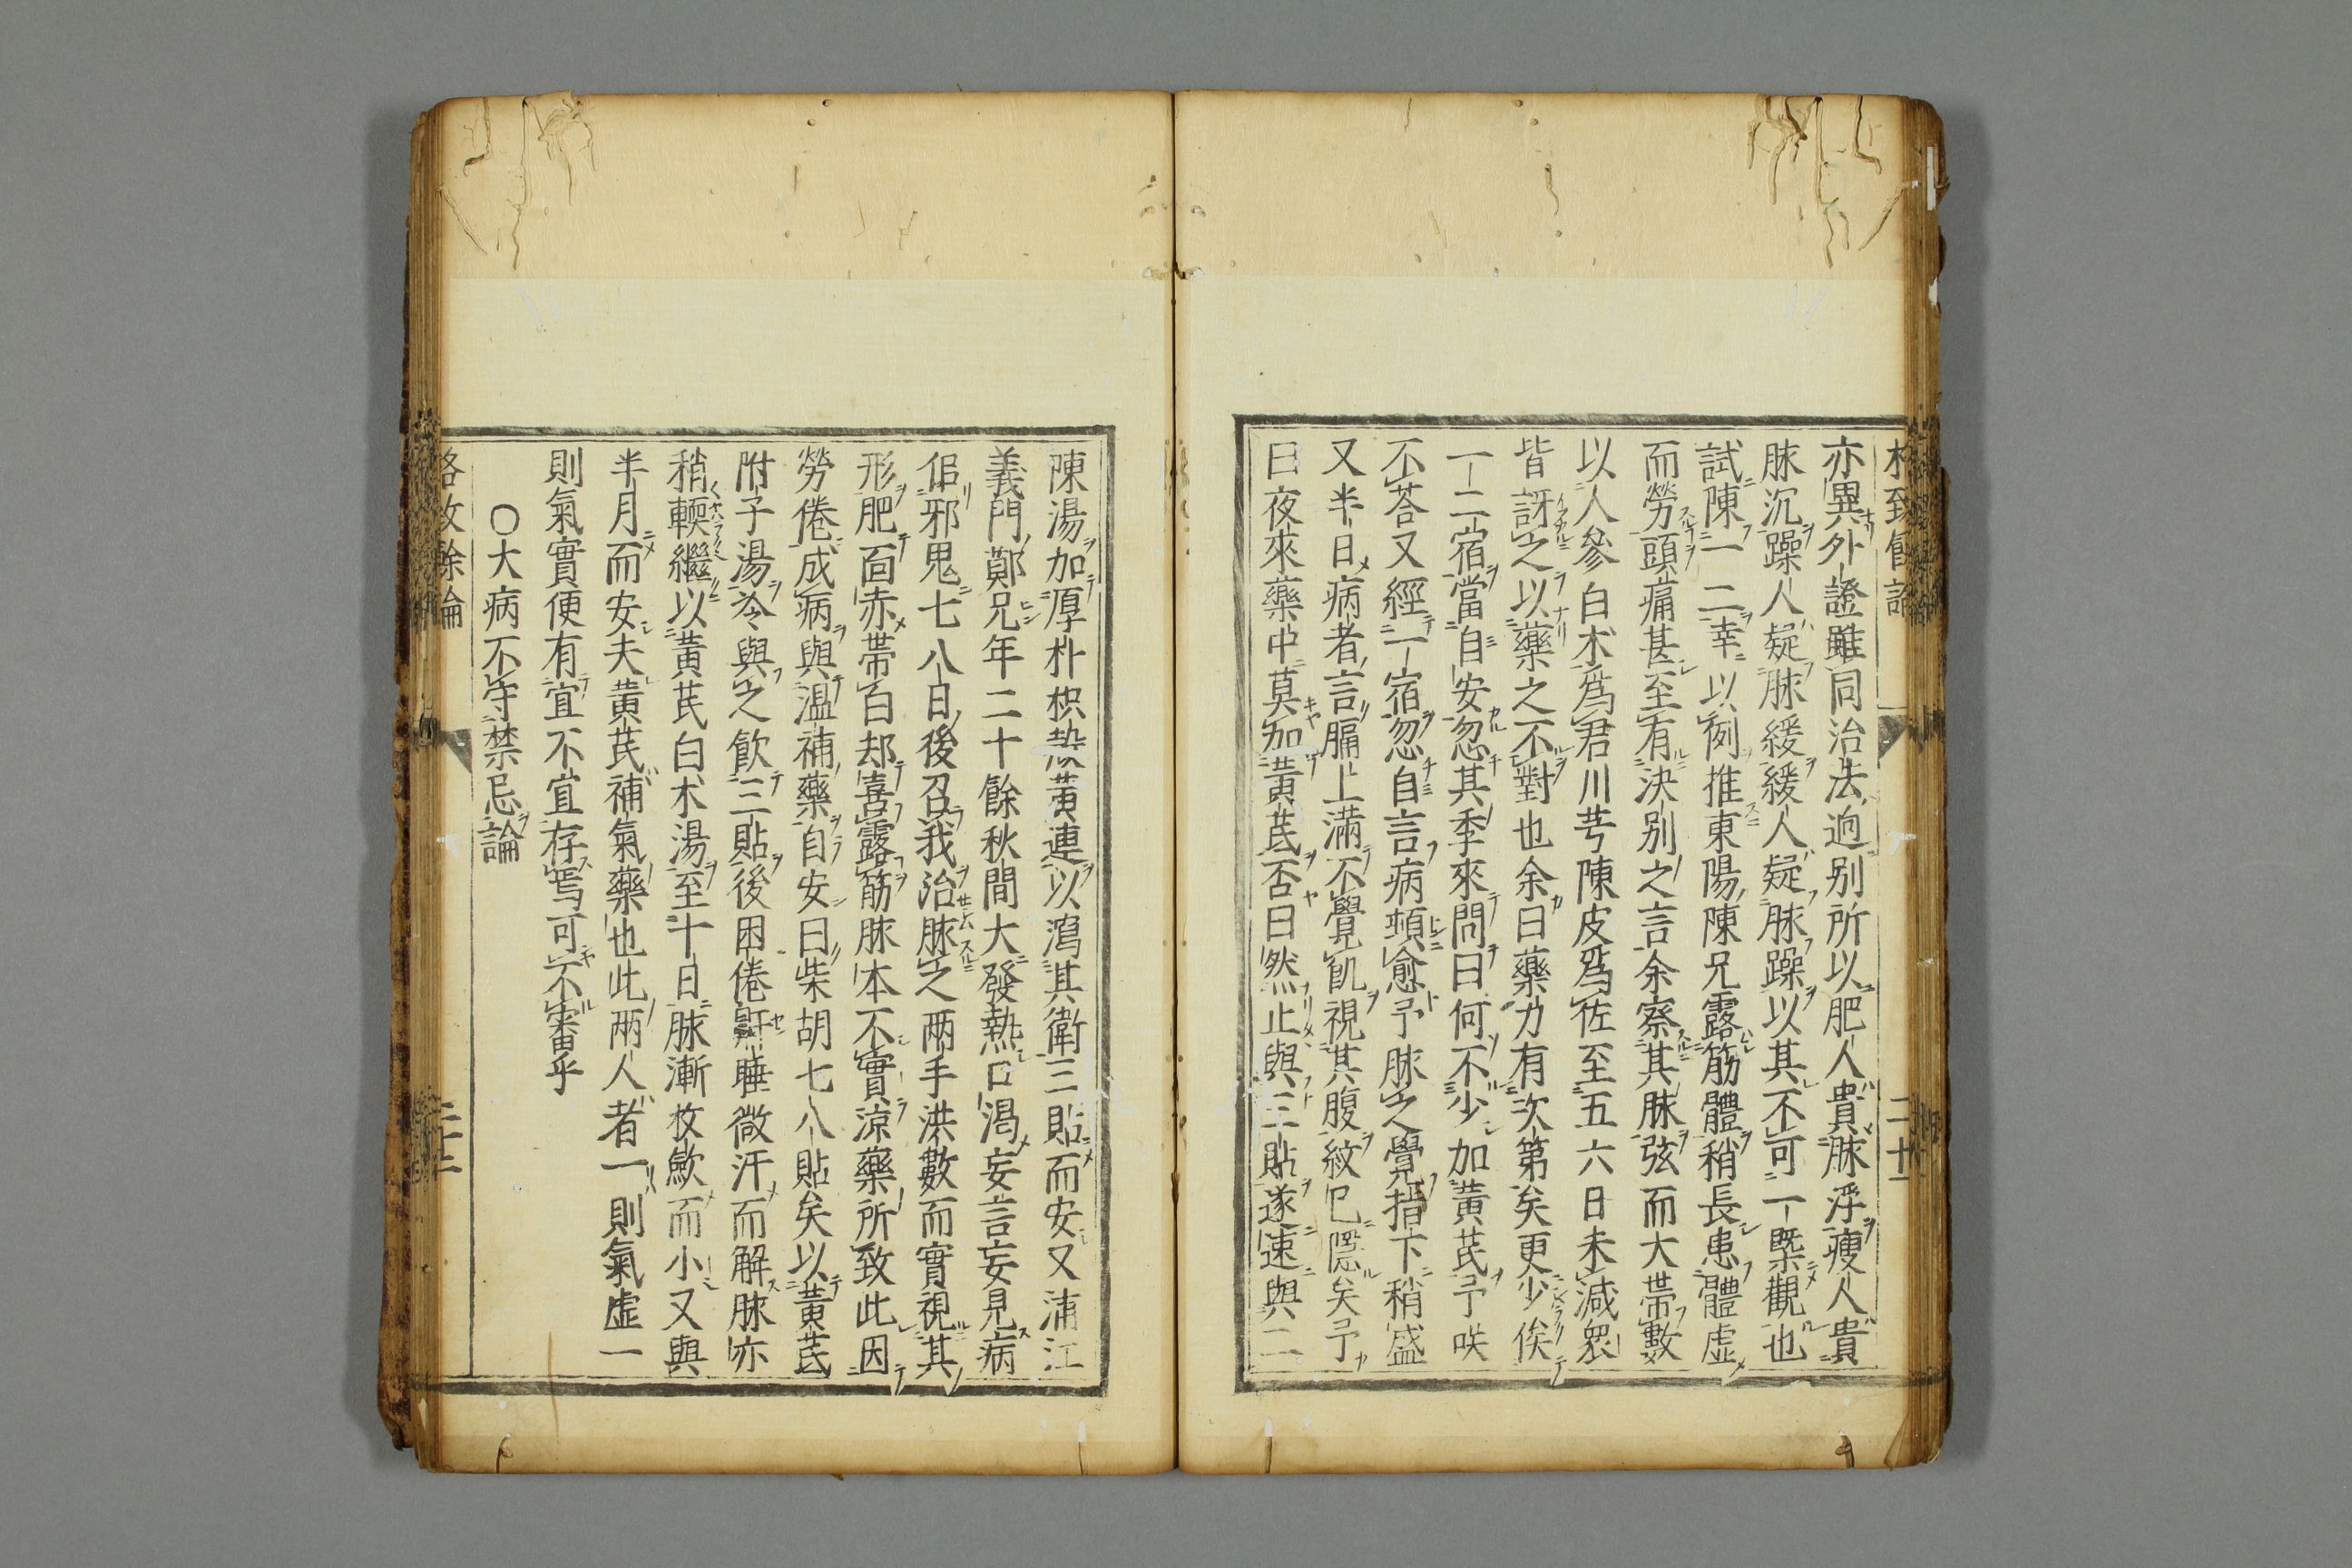 亦異外證雖同治法逈別所以肥人貴脉浮瘦人貴
脉沉躁人疑脉緩緩人疑脉躁以其不可一槩觀也
試陳一二幸以例推東陽陳兄露筋體稍長患體虛
而勞頭痛甚至有決别之言余察其脉弦而大帶數
以人參白朮爲君川芎陳皮爲佐至五六日未減衆
皆訝之以藥之不對也余曰藥力有次第矣更少俟
一二宿當自安忽其季來問曰何不少加黃芪予咲
不荅又經一宿忽自言病頓愈予脉之覺指下稍盛
又半日病者言膈上滿不覺飢視其腹紋已隱矣予
曰夜來藥中莫加黃芪否曰然止與三貼遂速與二
陳湯加厚朴枳殼黃連以瀉其衛三貼而安又浦江
義門鄭兄年二十餘秋間大發熱口渴妄言妄見病
佀邪鬼七八日後召我治脉之两手洪數而實視其
形肥面赤帶白却喜露筋脉本不實涼藥所致此因
勞倦成病與温補藥自安曰柴胡七八貼矣以黃芪
附子湯冷與之飮三貼後困倦鼾睡微汗而解脉亦
稍輭繼以黃芪白朮湯至十日脉漸收歛而小又與
半月而安夫黃芪補氣藥也此兩人者一則氣虛一
則氣實便有宜不宜存焉可不審乎
〇大病不守禁忌論
格致餘論